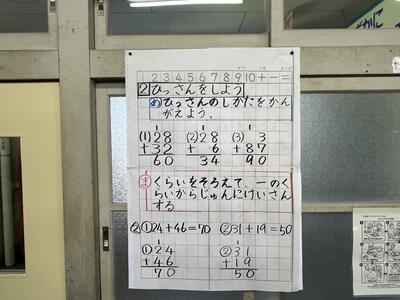 2 3 4 5 6 7 8 9 10 + − =
2 ひっさんをしよう
め ひっさんのしかたをかん
がえよう。
(1) 28 + 32 = 60
(2) 28 + 6 = 34
(3) 3 + 87 = 90
ま くらいをそろえて、一のく
らいからじゅんにけいさん
する
② ①24+46=70 ②31+19=50
① 24 + 46 = 70
② 31 + 19 = 50